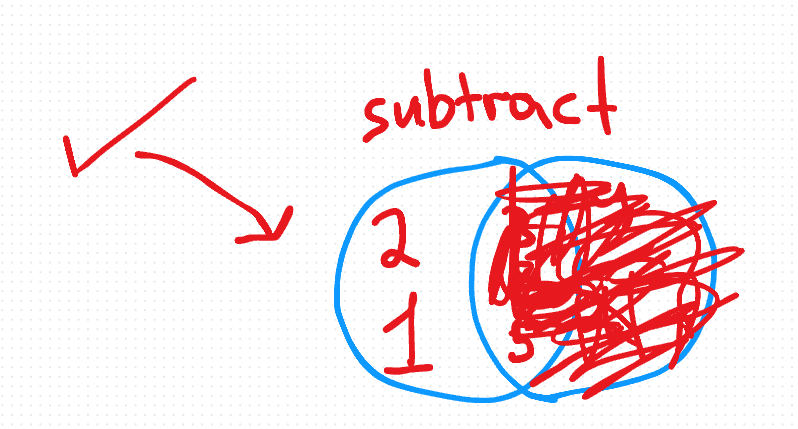 subtract
2
1
5